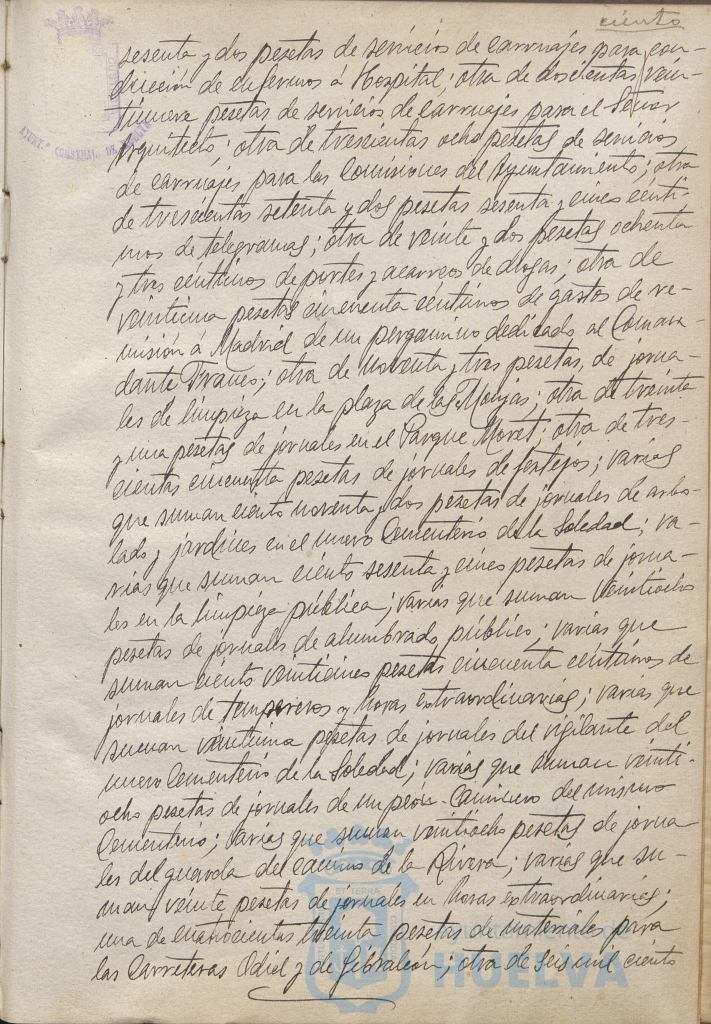 ciento
sesenta y dos pesetas de servicios de carruajes para con-
ducción de enfermos á Hospital; otra de doscientas vein-
tinueve pesetas de servicios de carruajes para el Señor
Arquitecto; otra de trescientas ocho pesetas de servicios
de carruajes para las Comisiones del Ayuntamiento; otra
de trescientas setenta y dos pesetas sesenta y cinco cénti-
mos de telegramas; otra de veinte y dos pesetas ochenta
y tres céntimos de portes y acarreos de drogas; otra de
veintiuna pesetas cincuenta céntimos de gastos de re-
misión á Madrid de un pergamino dedicado al Coman-
dante Franco; otra de noventa y tres pesetas, de jorna-
les de limpieza en la plaza de las Monjas; otra de treinta
y una pesetas de jornales en el Parque Moret; otra de tres-
cientas cincuenta pesetas de jornales de festejos; varias
que suman ciento noventa y dos pesetas de jornales de arbo-
lado y jardines en el nuevo Cementerio de la Soledad; va-
rias que suman ciento sesenta y cinco pesetas de jorna-
les en la limpieza pública; varias que suman veintiocho
pesetas de jornales de alumbrado público; varias que
suman ciento veinticinco pesetas cincuenta céntimos de
jornales de tempereros y horas extraordinarias; varias que
suman veintiuna pesetas de jornales del vigilante del
nuevo Cementerio de la Soledad; varias que suman veinti-
ocho pesetas de jornales de un peón-caminero del mismo
Cementerio; varias que suman veintiocho pesetas de jorna
les del guarda del camino de la Rivera; varias que su-
man veinte pesetas de jornales en horas extraordinarias;
una de cuatrocientas treinta pesetas de materiales para
las Carreteras Odiel y de Gibraleón; otra de seis mil ciento
HUELVA